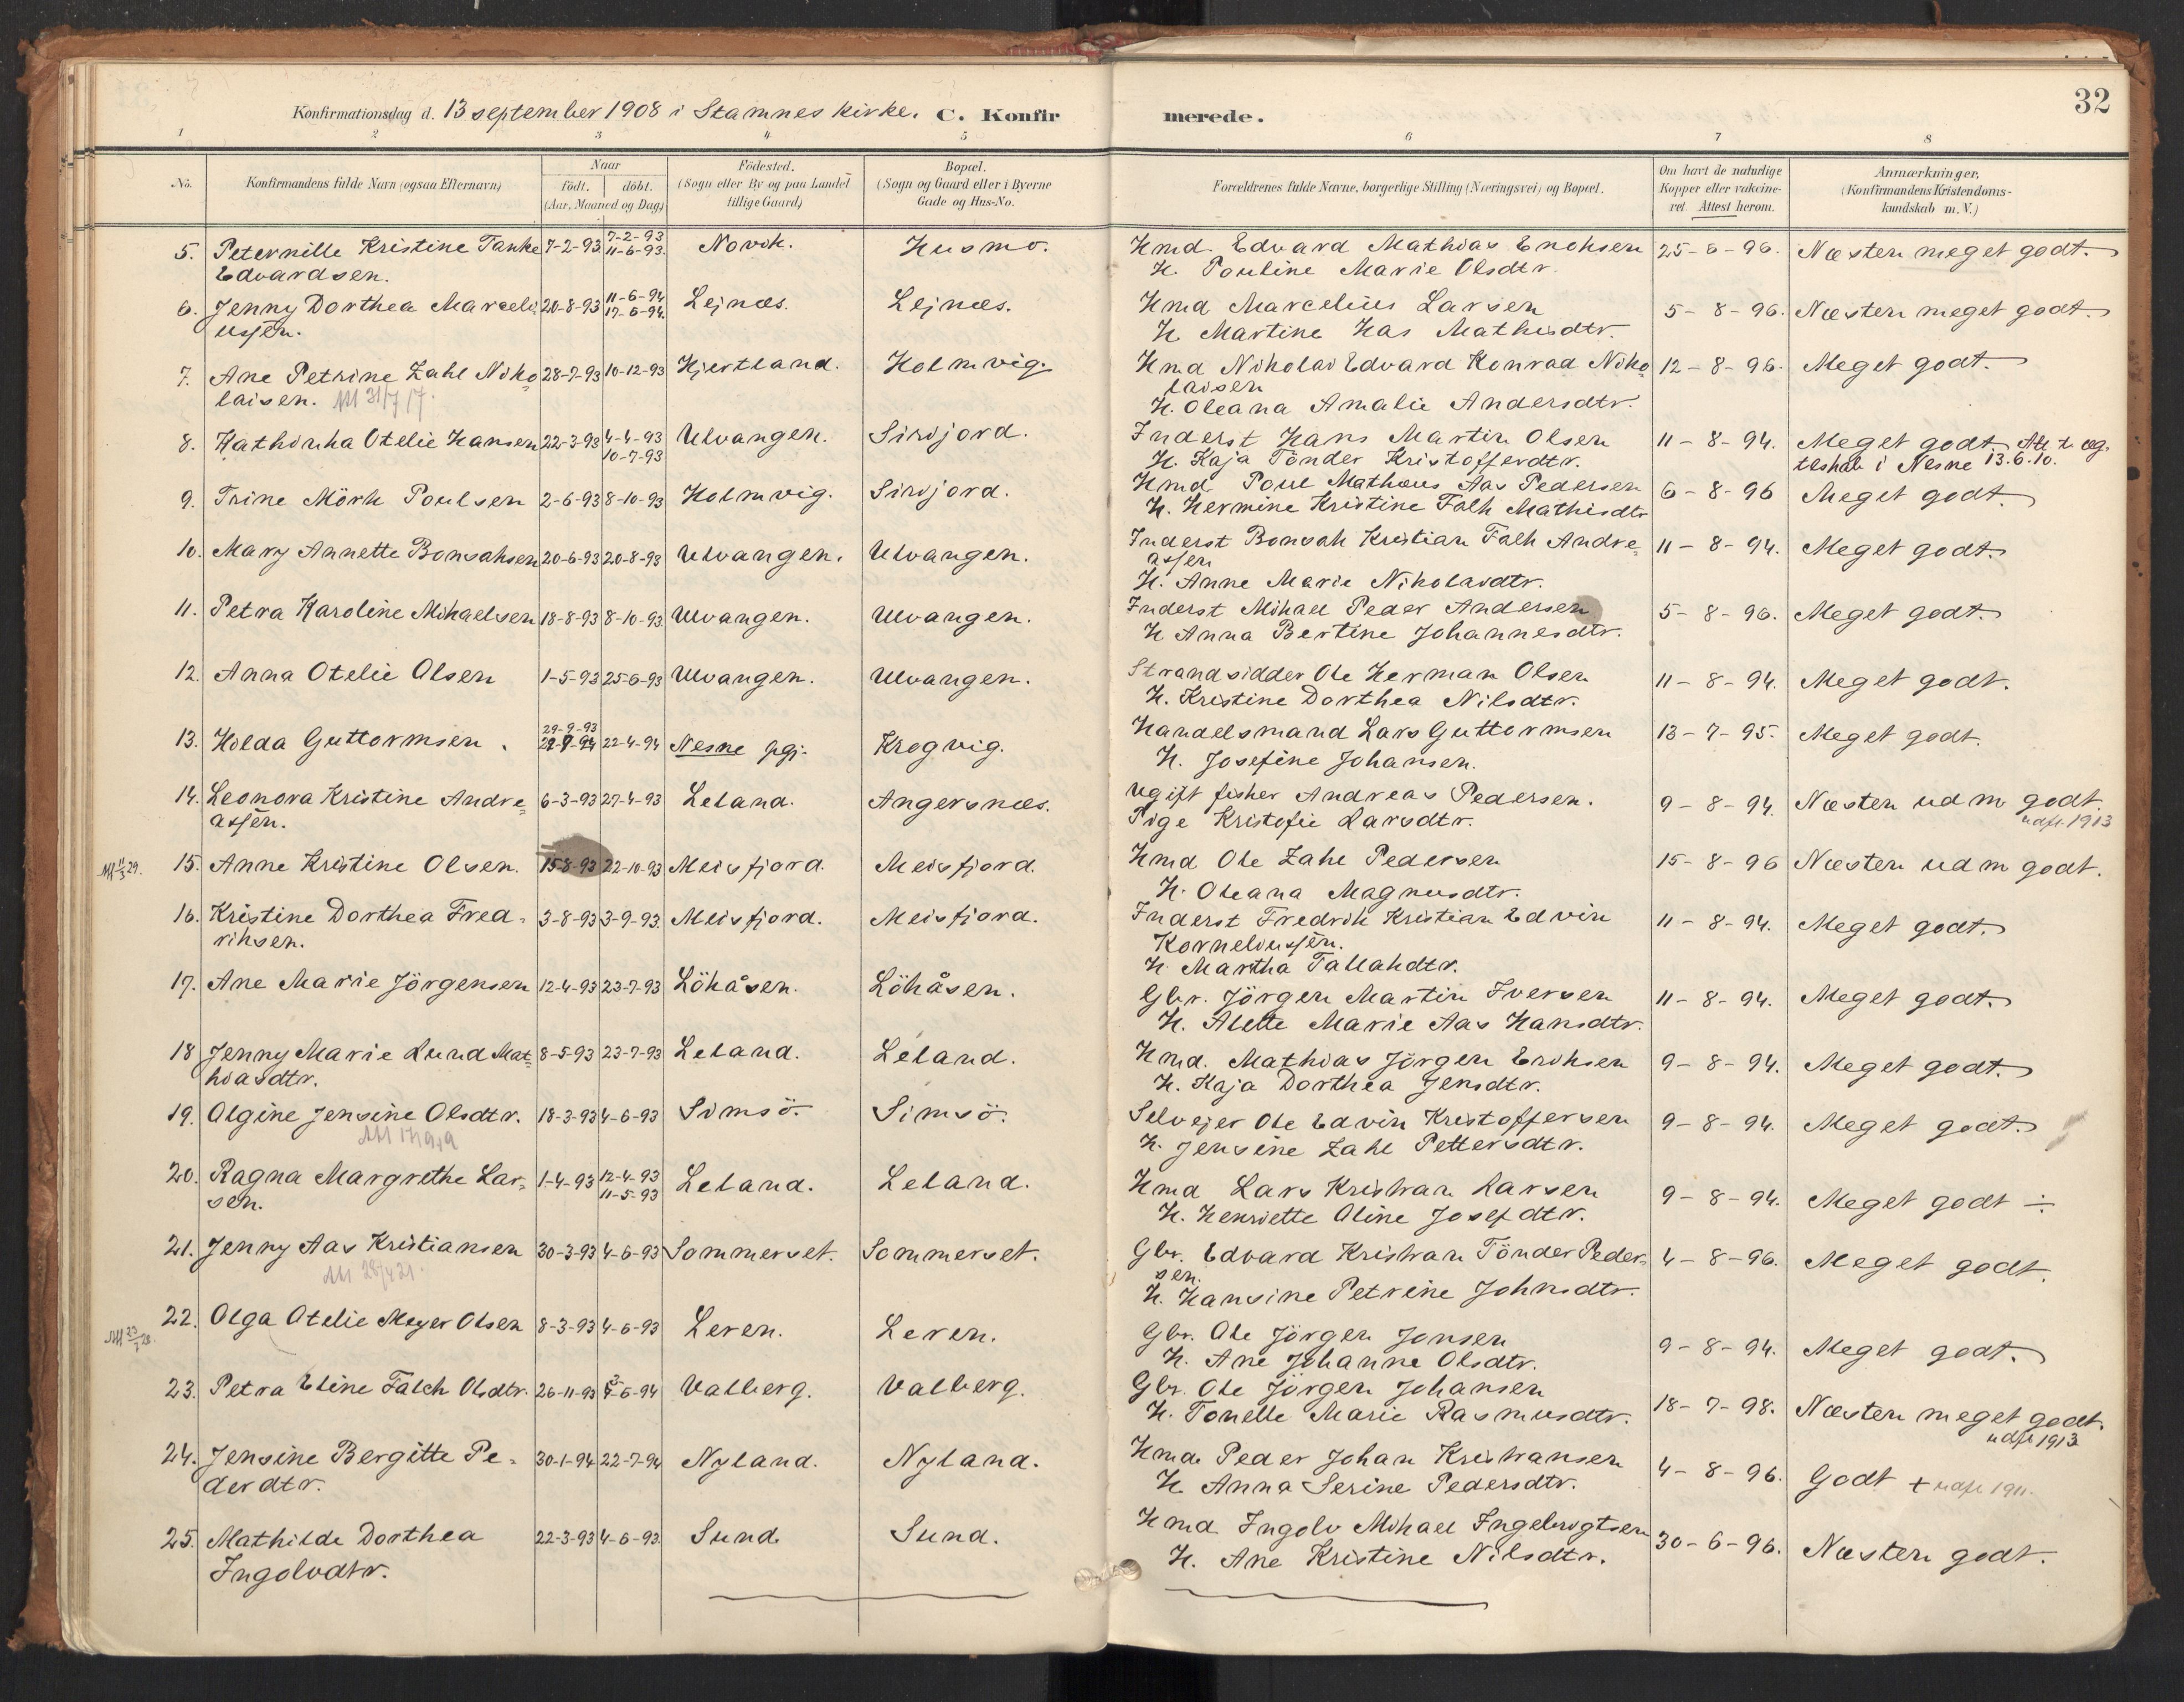 32
Konfirmationsdag d. 13 september 1908 i Stamnes kirke. C. Konfirmerede.
1 2 3 4 5 6 7 8
No.
Konfirmandens fulde Navn (ogsaa Efternavn)
Naar
födt. döbt.
(Aar, Maaned og Dag)
Födested.
(Sogn eller By og paa Landet
tillige Gaard)
Bopæl.
(Sogn og Gaard eller i Byerne
Gade og Hus-No.
Forældrenes fulde Navne, borgerlige Stilling (Næringsvei) og Bopæl.
Om havt de naturlige
Kopper eller vaccine-
ret. Attest herom.
Anmærkninger.
(Konfirmandens Kristendoms-
kundskab m. V.)
5. Peternille Kristine Tanke 7-2-93 7-2-93 Novik. Husmo. Hmd. Edvard Mathias Erichsen 25-6-96. Næsten meget godt.
Edvardsen. 11-6-93. H. Pouline Marie Olsdtr.
6. Jenny Dorthea Marceli 20-8-93 11-6-94 Lejnæs. Lejnæs. Hmd Marcelius Larsen 5-8-96. Næsten meget godt.
ussen. 17-6-94. H. Martine Has Mathisdtr.
7. Ane Petrine Zahl Niko 28-7-93 10-12-93 Hjertland. Holmvig. Hmd Nikolai Edvard Konrad Niko 12-8-96. Meget godt.
laisen. laisen
H. Oleana Amalie Andersdtr.
8. Kathinka Otelie Hansen 22-3-93 4-4-93 Ulvangen. Sirijord. Inderst Hans Martin Olsen 11-8-94. Meget godt. Att. t. æg-
10-7-93 H. Kaja Tönder Kristofferdtr. teskab i Nesne 13.6.10.
9. Trine Mörk Poulsen 2-6-93 8-10-93 Holmvig. Sirijord. Hmd Poul Mathæus Aas Pedersen 6-8-96 Meget godt.
H. Hermine Kristine Falk Mathisdtr
10. Mary Annette Bonsaksen 20-6-93 20-8-93 Ulvangen. Ulvangen. Inderst Bonsak Kristian Falk Andre 11-8-94. Meget godt.
assen
H. Anne Marie Nikolaidtr.
11. Petra Karoline Mikaelsen 18-8-93 8-10-93 Ulvangen. Ulvangen. Inderst Mikael Peder Andersen 5-8-96. Meget godt.
H Anna Bertine Johannesdtr.
12. Anna Otelie Olsen 1-5-93 25-6-93 Ulvangen. Ulvangen. Strandsidder Ole Herman Olsen 11-8-94. Meget godt.
H. Kristine Dorthea Nilsdtr.
13. Hilda Guttormsen. 29-9-93 22-4-94 Nesne pgj. Krogvig. Handelsmand Lars Guttormsen 13-7-95. Meget godt.
H. Josefine Johansen.
14. Leonora Kristine Andre 6-3-93 27-4-93 Leland. Angersnæs. Ugift fisker Andreas Pedersen. 9-8-94. Næsten ud m godt.
assen. Pige Kristofie Larsdtr. udfl. 1913
15. Anne Kristine Olsen. 15-8-93 22-10-93 Meisfjord. Meisfjord. Hmd Ole Zahl Pedersen 15-8-96 Næsten ud m godt.
H. Oleana Magnusdtr.
16. Kristine Dorthea Fred- 3-8-93 3-9-93. Meisfjord. Meisfjord. Inderst Fredrik Kristian Edvin 11-8-94. Meget godt.
riksen. Korneliussen.
H. Martha Tallakdtr.
17. Ane Marie Jörgensen 12-4-93 23-7-93 Lökåsen. Lökåsen. Gbr. Jörgen Martin Iversen 11-8-94. Meget godt.
H. Alette Marie Aas Hansdtr.
18 Jenny Marie Lund Mat 8-5-93 23-7-93 Leland. Leland. Hmd. Mathias Jörgen Eriksen 9-8-94. Meget godt.
hiasdtr. H. Kaja Dorthea Jensdtr.
19. Olgine Jensine Olsdtr. 18-3-93 4-6-93 Simsö. Simsö. Selvejer Ole Edvin Kristoffersen 9-8-94. Meget godt.
H. Jensine Zahl Pettersdtr.
20. Ragna Margrethe Lar- 1-4-93 12-4-93 Leland. Leland. Hmd Lars Kristian Larsen 9-8-94. Meget godt ÷
sen. 11-5-93 H. Henriette Oline Josefdtr.
21. Jenny Aas Kristiansen 30-3-93 4-6-93 Sommerset. Sommerset. Gbr. Edvard Kristian Tönder Peder- 4-8-96. Meget godt.
sen.
H. Hansine Petrine Johnsdtr.
22. Olga Otelie Meyer Olsen 8-3-93 4-6-93 Leren. Leren. Gbr. Ole Jörgen Jonsen 9-8-94. Meget godt.
H. Ane Johanne Olsdtr.
23. Petra Eline Falch Olsdtr. 26-11-93 Valberg. Valberg. Gbr. Ole Jörgen Johansen 18-7-98. Næsten meget godt.
H. Tonelle Marie Rasmusdtr. udfl 1913
24. Jensine Bergitte Pe- 30-1-94 22-7-94 Nyland. Nyland. Hmd. Peder Johan Kristiansen 4-8-96. Godt + udfl 1911.
derdtr. H. Anna Serine Pedersdtr.
25. Mathilde Dorthea 22-3-93 4-6-93. Sund. Sund. Hmd. Ingolv Mikael Ingebrigtsen 30-6-96. Næsten godt.
Ingolvdtr. H. Ane Kristine Nilsdtr.